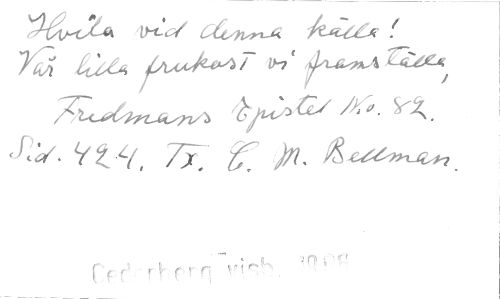 Hvila vid denna källa!
Vår lilla frukost vi framställa,
Fredmans Epistel No. 82.
Sid. 424. Tx. C. M. Bellman.
Cederberg